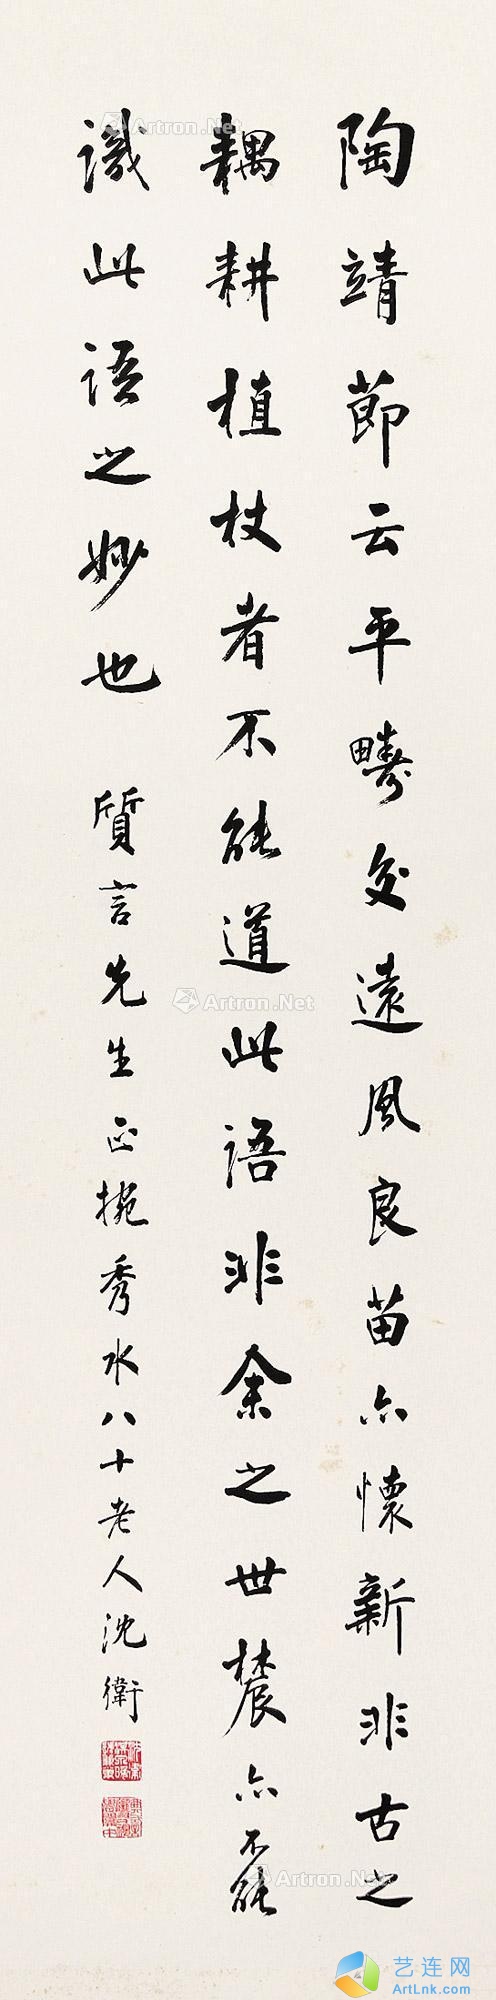 陶靖節云平疇交遠風良苗亦懷新非古之
耦耕植杖者不能道此語非余之世農亦不能
識此語之妙也 質言先生正捥秀水八十老人沈衛
Artron.Net
Artron.Net
Artron.Net
艺连网
ArtLnk.com